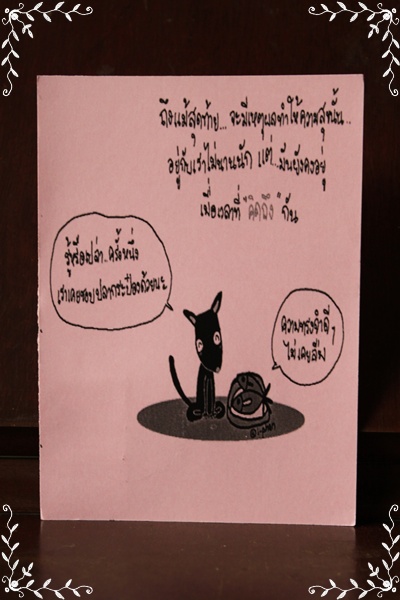 ถึงแม้สุดท้าย... จะมีเหตุผลทำให้ความสุขนั้น...
อยู่กับเราไม่นานนัก แต่...มันยังคงอยู่
เมื่อเวลาที่ "คิดถึง" กัน
รู้หรือเปล่า..ครั้งหนึ่ง
เราเคยชอบปลากระป๋องด้วยนะ
ความทรงจำดี ๆ
ไม่เคยลืม